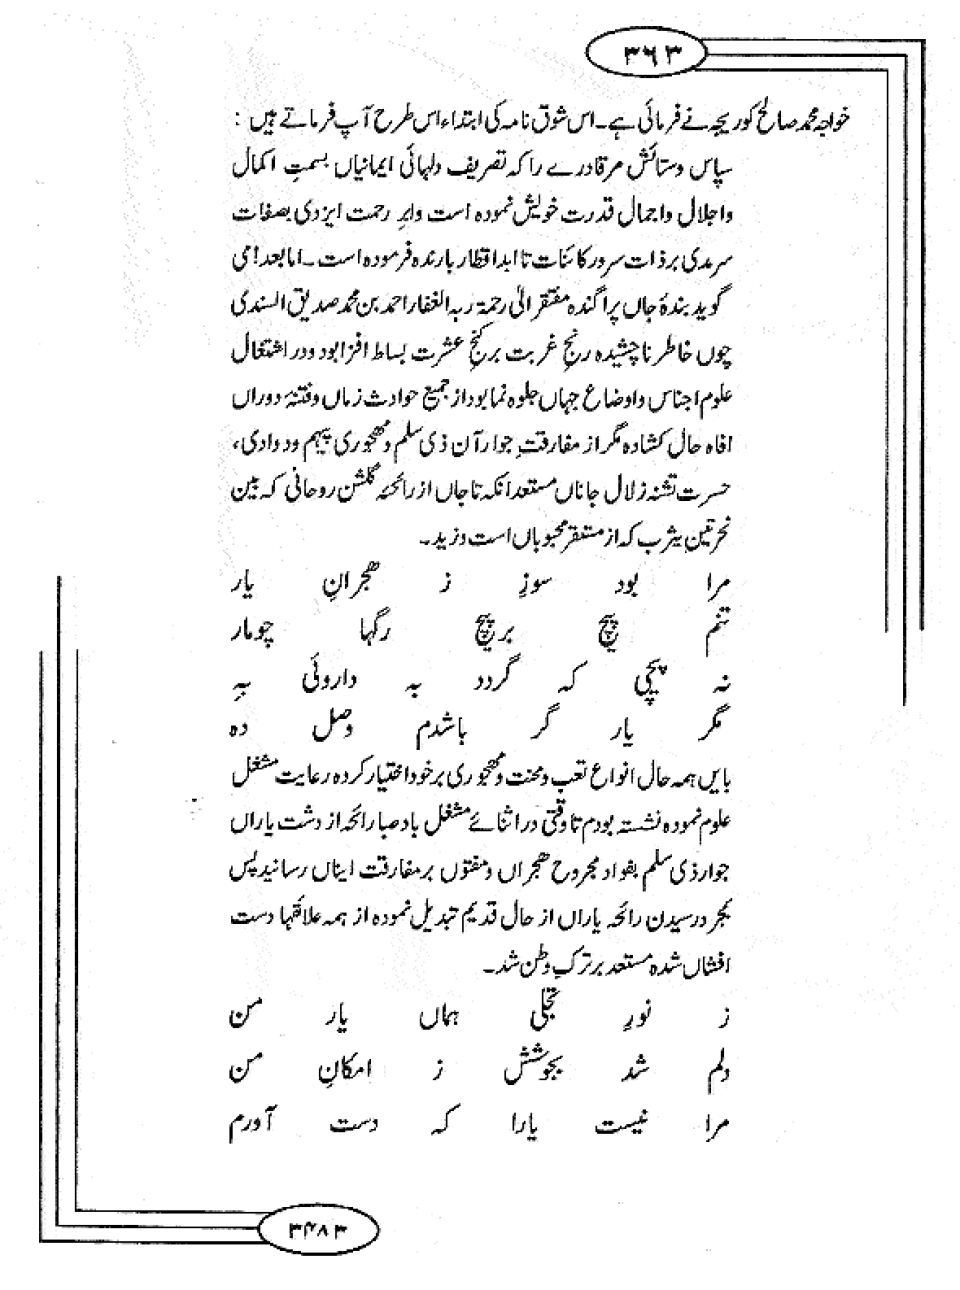 ۳۶۳
خواجہ محمد صالح کوریجہ نے فرمائی ہے۔ اس شوق نامہ کی ابتداء اس طرح آپ فرماتے ہیں :
سپاس وستائش مر قادرے را کہ تصریف دلہائی ایمانیاں بسمتِ اکمال
واجلال واجمال قدرت خویش نمودہ است وابرِ رحمت ایزدی بصفات
سرمدی برذات سرور کائنات تا ابدا قطار بارندہ فرمودہ است۔ اما بعد! می
گوید بندۂ جاں پراگندہ مفتقر الیٰ رحمۃ ربہ الغفار احمد بن محمد صدیق السندی
چوں خاطر ناچشیدہ رنجِ غربت بر کنجِ عشرت بساط افزا بود ودر اشتغال
علوم اجناس واوضاع جہاں جلوہ نما بود از جمیع حوادث زماں وفتنۂ دوراں
افاہ حال کشادہ مگر از مفارقتِ جوار آن ذی سلم ومهجوری پیہم ود وادی،
حسرت تشنہ زلال جاناں مستعد انکہ تا جاں از رائحۂ گلشن روحانی کہ بین
نحرتین یثرب کہ از مستقر محبوباں است وزید۔
مرا بود سوزِ ز ھجرانِ یار
تنم پیچ بر پیچ رگہا چومار
نہ پیچی کہ گردد بہ داروئی بہِ
مگر یار گر باشدم وصل دہ
بایں ہمہ حال انواع تعب ومحنت ومهجوری برخود اختیار کردہ رعایت مشغل
علوم نمودہ نشستہ بودم تا وقتی در اثنائے مشغل باد صبا رائحہ از دشت یاراں
جوار ذی سلم بفواد مجروح ھجراں ومفتوں بر مفارقت ایناں رسانید پس
بجرد رسیدن رائحہ یاراں از حال قدیم تبدیل نمودہ از ہمہ علاقہا دست
افشاں شدہ مستعد بر ترکِ وطن شد۔
ز نورِ تجلی ہماں یار من
دلم شد بجوشش ز امکانِ من
مرا نیست یارا کہ دست آورم
۳۴۸۳